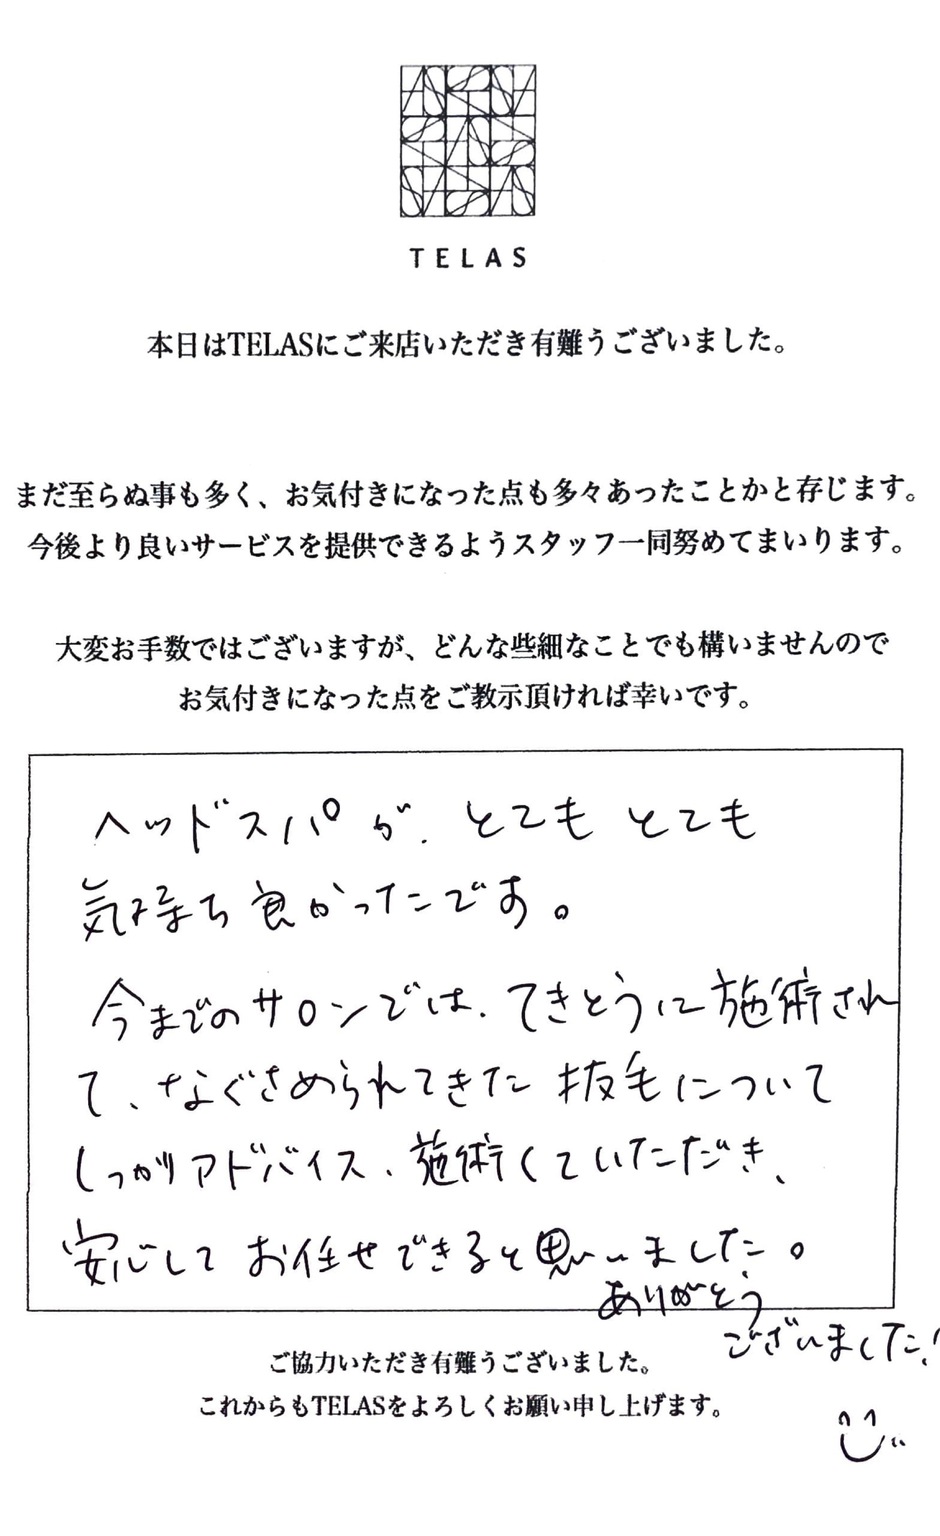 TELAS
本日はTELASにご来店いただき有難うございました。
まだ至らぬ事も多く、お気付きになった点も多々あったことかと存じます。
今後より良いサービスを提供できるようスタッフ一同努めてまいります。
大変お手数ではございますが、どんな些細なことでも構いませんので
お気付きになった点をご教示頂ければ幸いです。
ヘッドスパが、とてもとても
気持ち良かったです。
今までのサロンでは、てきとうに施術され
て、なぐさめられてきた抜毛について
しっかりアドバイス、施術していただき、
安心してお任せできると思いました。
ありがとう
ございました!
ご協力いただき有難うございました。
これからもTELASをよろしくお願い申し上げます。